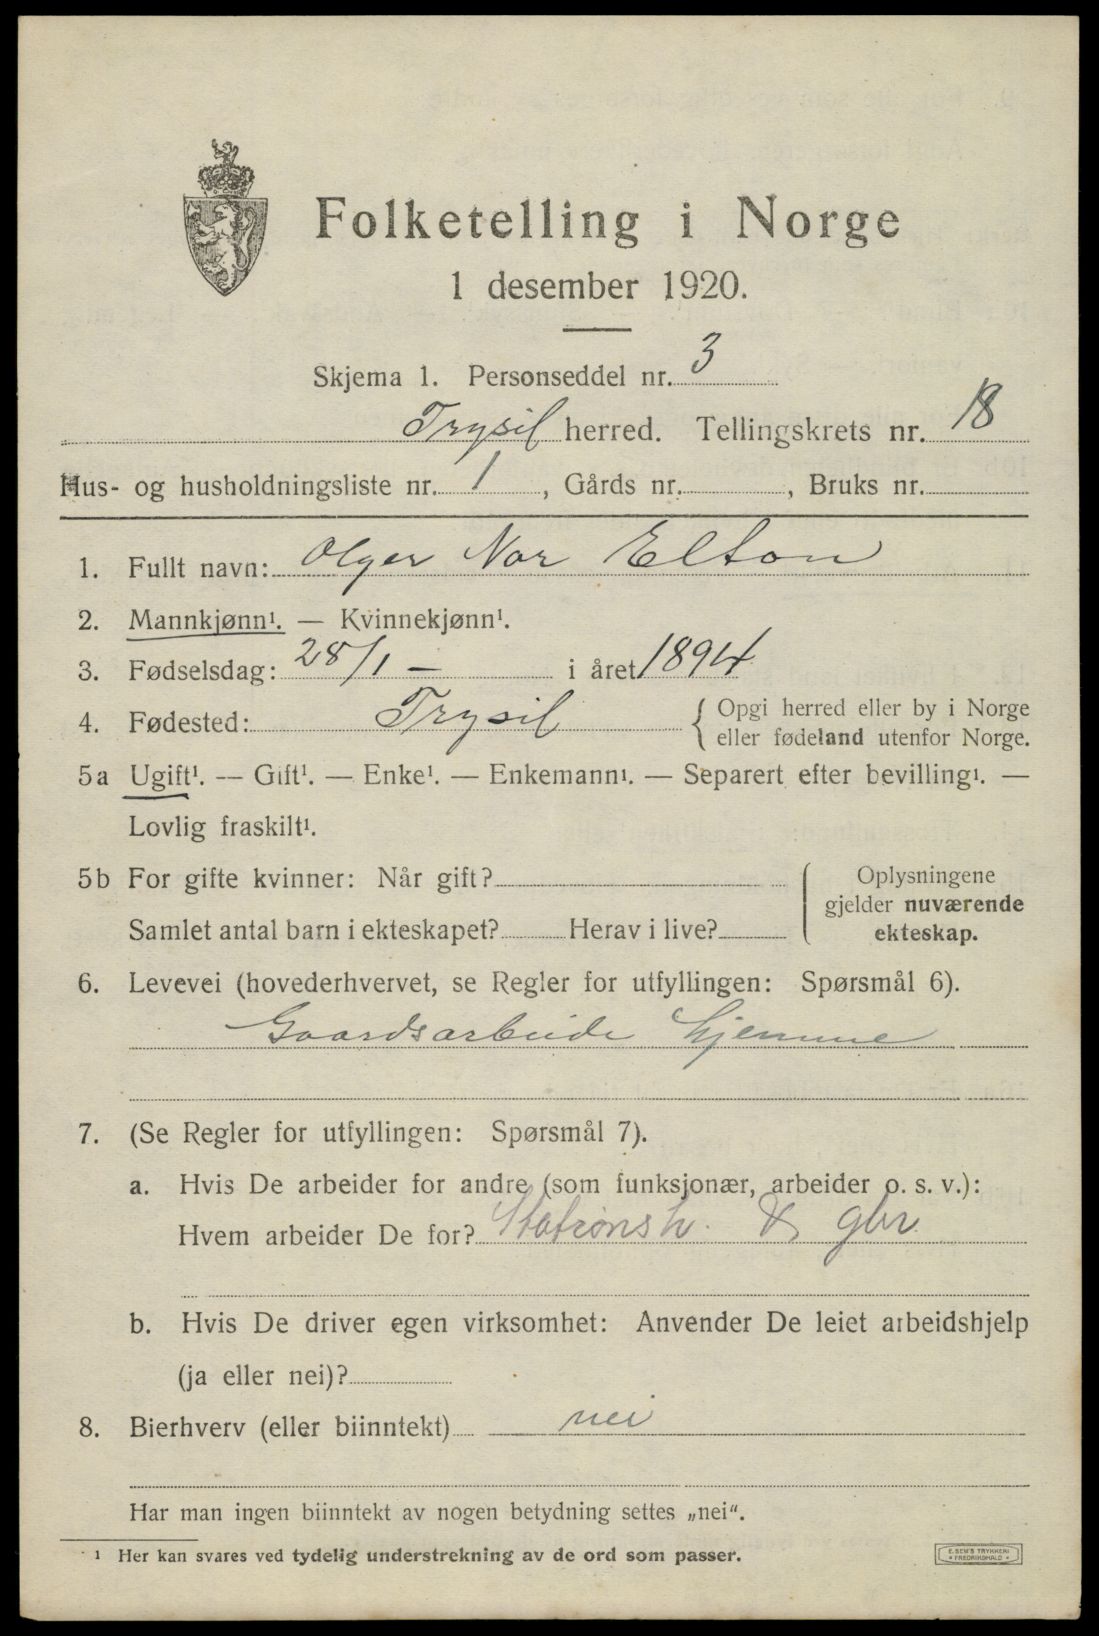 Folketelling i Norge
1 desember 1920.
Skjema 1. Personseddel nr. 3
Trysil herred. Tellingskrets nr. 18
Hus- og husholdningsliste nr. 1, Gårds nr. , Bruks nr.
1. Fullt navn: Olger Nor Elton
2. Mannkjønn¹. — Kvinnekjønn¹.
3. Fødselsdag: 28/1 — i året 1894
4. Fødested: Trysil { Opgi herred eller by i Norge
eller fødeland utenfor Norge.
5a Ugift¹. — Gift¹. — Enke¹. — Enkemann¹. — Separert efter bevilling¹. —
Lovlig fraskilt¹.
5b For gifte kvinner: Når gift?
Samlet antal barn i ekteskapet? Herav i live?
Oplysningene
gjelder nuværende
ekteskap.
6. Levevei (hovederhvervet, se Regler for utfyllingen: Spørsmål 6).
Gaardsarbeide hjemme
7. (Se Regler for utfyllingen: Spørsmål 7).
a. Hvis De arbeider for andre (som funksjonær, arbeider o. s. v.):
Hvem arbeider De for? Stationsh. & gbr.
b. Hvis De driver egen virksomhet: Anvender De leiet arbeidshjelp
(ja eller nei)?
8. Bierhverv (eller biinntekt) nei
Har man ingen biinntekt av nogen betydning settes „nei“.
¹ Her kan svares ved tydelig understrekning av de ord som passer.
E. SEM'S TRYKKERI
FREDRIKSHALD